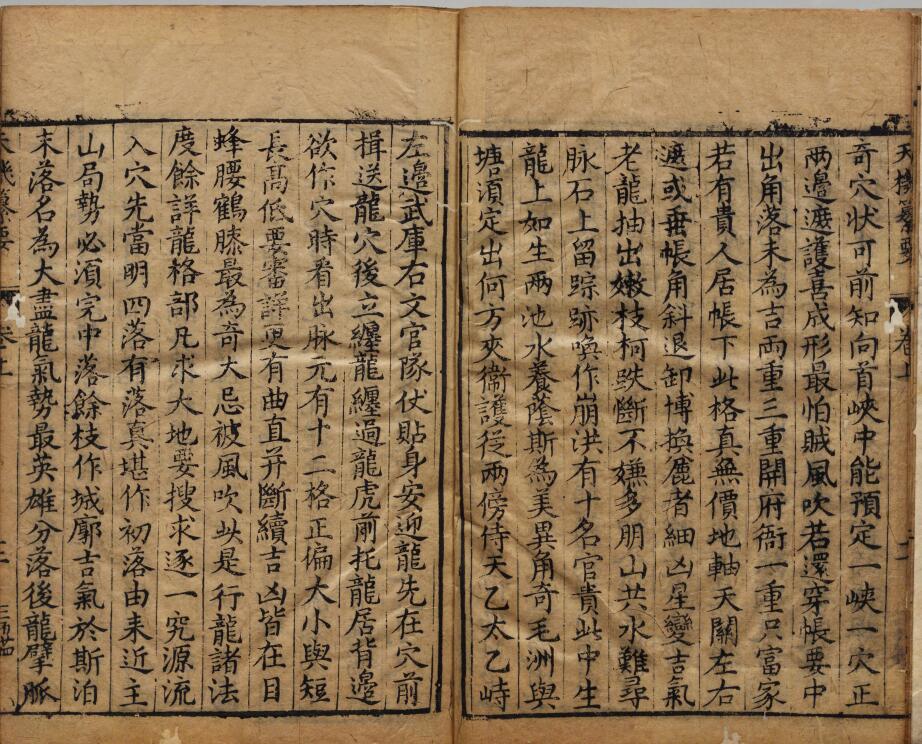 天機纂要 卷上 二
奇穴狀可前知向首峽中能預定一峽一穴正
两邊遮護喜成形最怕賊風吹若還穿帳要中
出角落未為吉兩重三重開府衙一重只富家
若有貴人居帳下此格真無價地軸天關左右
遮或垂帳角斜退卸博換麄者細凶星變吉氣
老龍抽出嫩枝柯跌斷不嫌多朋山共水難尋
脉石上留踪跡喚作崩洪有十名官貴此中生
龍上如生两池水養蔭斯為美異角奇毛洲與
塘湏定出何方夾衛護從两傍侍天乙太乙峙
左邊武庫右文官隊伏貼身安迎龍先在穴前
揖送龍穴後立纏龍纏過龍虎前托龍居背邊
欲作穴時看出脉元有十二格正偏大小與短
長髙低要審詳更有曲直并斷續吉凶皆在目
蜂腰鶴膝最為奇大忌被風吹此是行龍諸法
度餘詳龍格部凡求大地要搜求逐一究源流
入穴先當明四落有落真堪作初落由来近主
山局勢必湏完中落餘枝作城廓吉氣於斯泊
末落名為大盡龍氣勢最英雄分落後龍擘脈
天機纂要 卷上 三